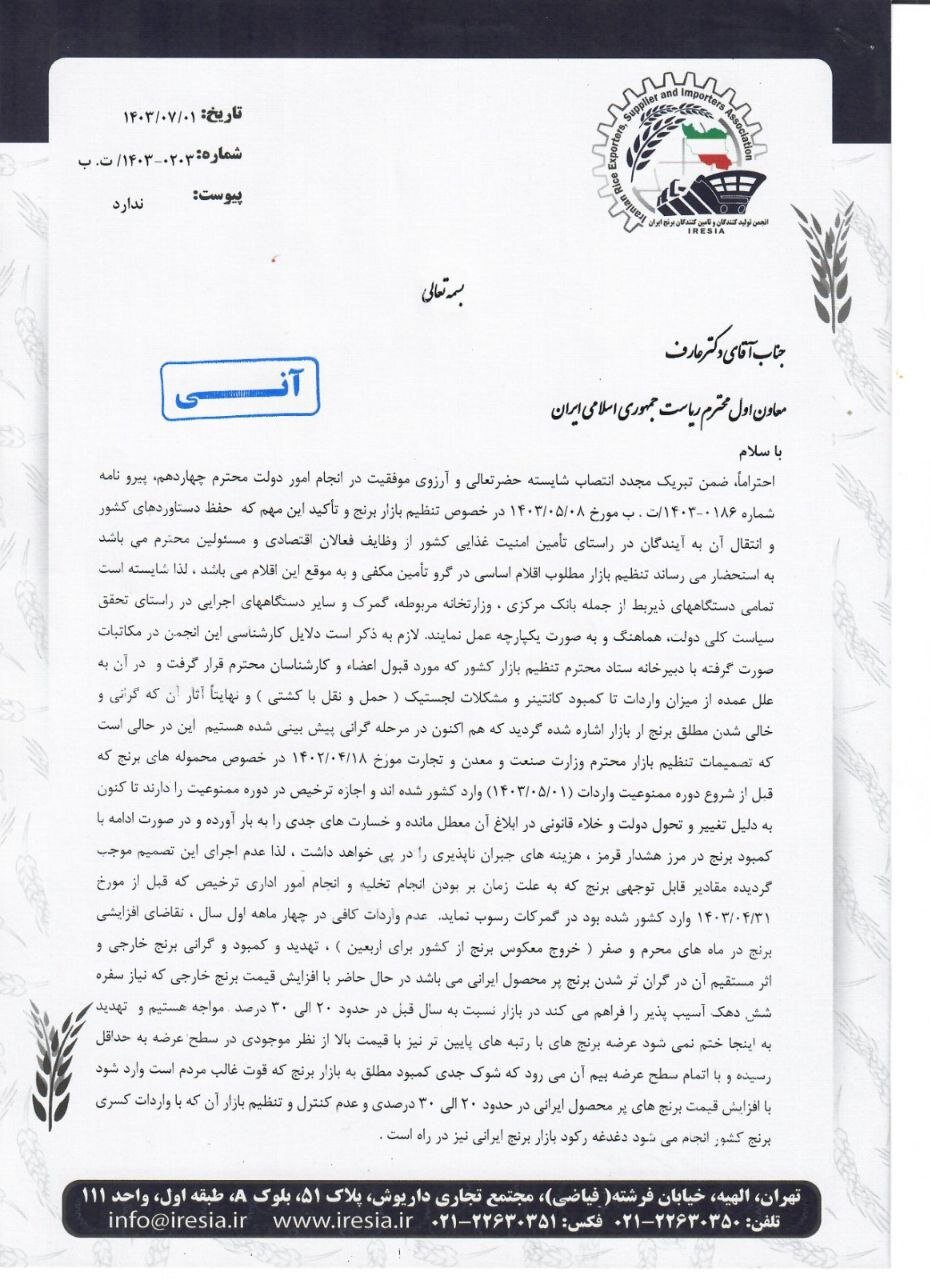 Iranian Rice Exporters, Supplier and Importers Association
انجمن تولید کنندگان و تامین کنندگان برنج ایران
IRESIA
تاریخ: ۱۴۰۳/۰۷/۰۱
شماره: ۰۲۰۳-۱۴۰۳/ت. ب
پیوست: ندارد
بسمه تعالی
جناب آقای دکتر عارف
آنـــی
معاون اول محترم ریاست جمهوری اسلامی ایران
با سلام
احتراماً، ضمن تبریک مجدد انتصاب شایسته حضرتعالی و آرزوی موفقیت در انجام امور دولت محترم چهاردهم، پیرو نامه
شماره ۰۱۸۶-۱۴۰۳/ت . ب مورخ ۱۴۰۳/۰۵/۰۸ در خصوص تنظیم بازار برنج و تأکید این مهم که حفظ دستاوردهای کشور
و انتقال آن به آیندگان در راستای تأمین امنیت غذایی کشور از وظایف فعالان اقتصادی و مسئولین محترم می باشد
به استحضار می رساند تنظیم بازار مطلوب اقلام اساسی در گرو تأمین مکفی و به موقع این اقلام می باشد ، لذا شایسته است
تمامی دستگاههای ذیربط از جمله بانک مرکزی ، وزارتخانه مربوطه، گمرک و سایر دستگاههای اجرایی در راستای تحقق
سیاست کلی دولت، هماهنگ و به صورت یکپارچه عمل نمایند. لازم به ذکر است دلایل کارشناسی این انجمن در مکاتبات
صورت گرفته با دبیرخانه ستاد محترم تنظیم بازار کشور که مورد قبول اعضاء و کارشناسان محترم قرار گرفت و در آن به
علل عمده از میزان واردات تا کمبود کانتینر و مشکلات لجستیک ( حمل و نقل با کشتی ) و نهایتاً آثار آن که گرانی و
خالی شدن مطلق برنج از بازار اشاره شده گردید که هم اکنون در مرحله گرانی پیش بینی شده هستیم این در حالی است
که تصمیمات تنظیم بازار محترم وزارت صنعت و معدن و تجارت مورخ ۱۴۰۲/۰۴/۱۸ در خصوص محموله های برنج که
قبل از شروع دوره ممنوعیت واردات (۱۴۰۳/۰۵/۰۱) وارد کشور شده اند و اجازه ترخیص در دوره ممنوعیت را دارند تا کنون
به دلیل تغییر و تحول دولت و خلاء قانونی در ابلاغ آن معطل مانده و خسارت های جدی را به بار آورده و در صورت ادامه با
کمبود برنج در مرز هشدار قرمز ، هزینه های جبران ناپذیری را در پی خواهد داشت ، لذا عدم اجرای این تصمیم موجب
گردیده مقادیر قابل توجهی برنج که به علت زمان بر بودن انجام تخلیه و انجام امور اداری ترخیص که قبل از مورخ
۱۴۰۳/۰۴/۳۱ وارد کشور شده بود در گمرکات رسوب نماید. عدم واردات کافی در چهار ماهه اول سال ، تقاضای افزایشی
برنج در ماه های محرم و صفر ( خروج معکوس برنج از کشور برای اربعین ) ، تهدید و کمبود و گرانی برنج خارجی و
اثر مستقیم آن در گران تر شدن برنج پر محصول ایرانی می باشد در حال حاضر با افزایش قیمت برنج خارجی که نیاز سفره
شش دهک آسیب پذیر را فراهم می کند در بازار نسبت به سال قبل در حدود ۲۰ الی ۳۰ درصد مواجه هستیم و تهدید
به اینجا ختم نمی شود عرضه برنج های با رتبه های پایین تر نیز با قیمت بالا از نظر موجودی در سطح عرضه به حداقل
رسیده و با اتمام سطح عرضه بیم آن می رود که شوک جدی کمبود مطلق به بازار برنج که قوت غالب مردم است وارد شود
با افزایش قیمت برنج های پر محصول ایرانی در حدود ۲۰ الی ۳۰ درصدی و عدم کنترل و تنظیم بازار آن که با واردات کسری
برنج کشور انجام می شود دغدغه رکود بازار برنج ایرانی نیز در راه است .
تهران، الهیه، خیابان فرشته( فیاضی)، مجتمع تجاری داریوش، پلاک ۵۱، بلوک A، طبقه اول، واحد ۱۱۱
تلفن: ۲۲۶۳۰۳۵۰-۰۲۱ فکس: ۲۲۶۳۰۳۵۱-۰۲۱ www.iresia.ir info@iresia.ir